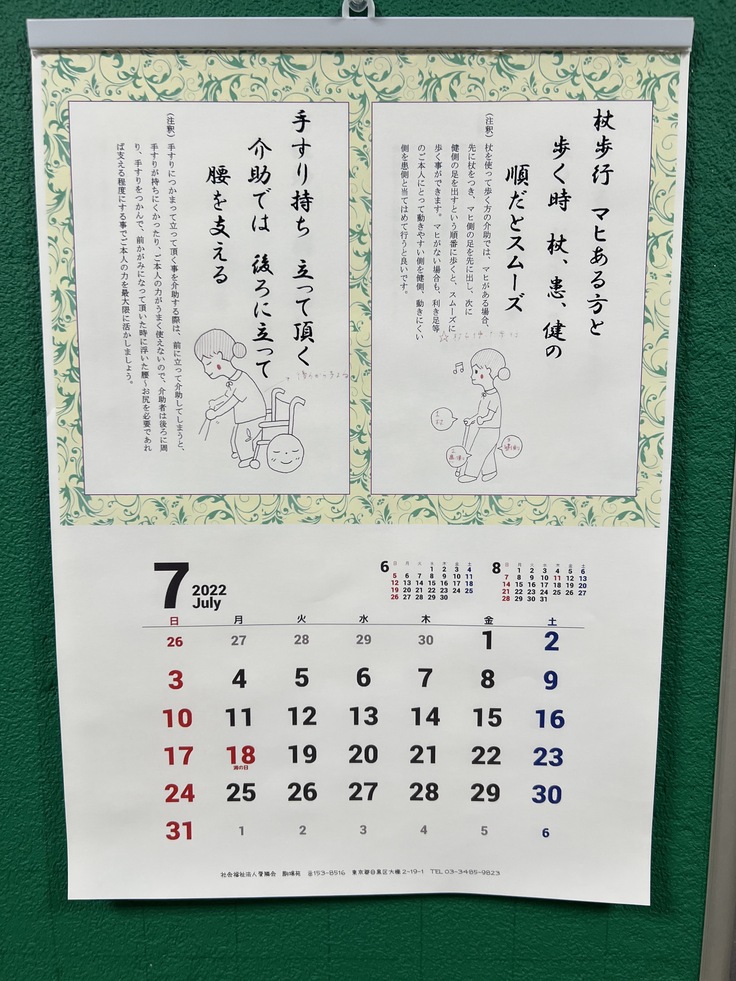 杖歩行　マヒある方と
歩く時　杖、患、健の
順だとスムーズ
（注釈）杖を使って歩く方の介助では、マヒがある場合、
先に杖をつき、マヒ側の足を先に出し、次に
健側の足を出すという順番に歩くと、スムーズに
歩く事ができます。マヒがない場合も、利き足等
のご本人にとって動きやすい側を健側、動きにくい
側を患側と当てはめて行うと良いです。
1
杖
2
患側
3
健側
手すり持ち　立って頂く
介助では　後ろに立って
腰を支える
（注釈）手すりにつかまって立って頂く事を介助する際は、前に立って介助してしまうと、
手すりが持ちにくかったり、ご本人の力がうまく使えないので、介助者は後ろに周
り、手すりをつかんで、前かがみになって頂いた時に浮いた腰～お尻を必要であれ
ば支える程度にする事でご本人の力を最大限に活かしましょう。
7 2022
July
6 日 月 火 水 木 金 土
1 2 3 4
5 6 7 8 9 10 11
12 13 14 15 16 17 18
19 20 21 22 23 24 25
26 27 28 29 30
8 日 月 火 水 木 金 土
1 2 3 4 5 6
7 8 9 10 11 12 13
14 15 16 17 18 19 20
21 22 23 24 25 26 27
28 29 30 31
日 月 火 水 木 金 土
26 27 28 29 30 1 2
3 4 5 6 7 8 9
10 11 12 13 14 15 16
17 18 19 20 21 22 23
海の日
24 25 26 27 28 29 30
31 1 2 3 4 5 6
社会福祉法人愛隣会　駒場苑　〒153-8516　東京都目黒区大橋2-19-1　TEL 03-3485-9823